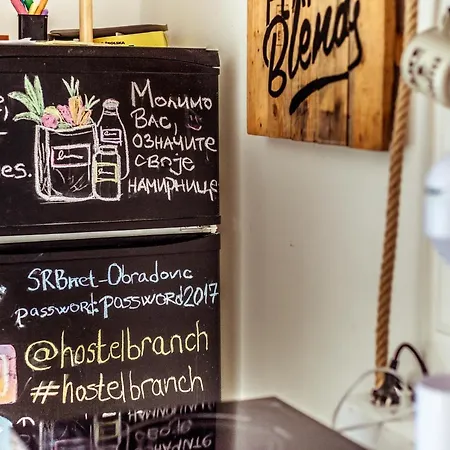 Blend
es.
Молимо
Вас,
означите
своје
намирнице
SRBnet-Obradovic
password:password2017
@hostelbranch
#hostelbranch